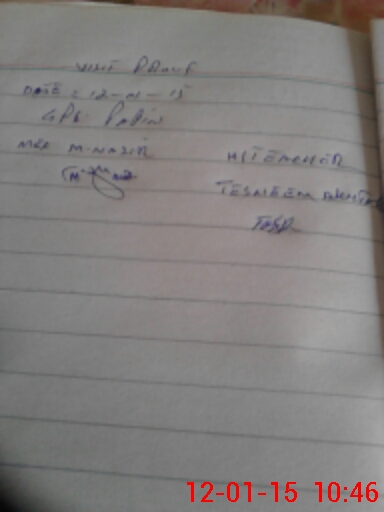 VISIT PROUF
DATE: 12-01-15
GPS PAPIN
MEE M-NAZIR
H/TEACHER
TESNEEM AKHTAR
12-01-15 10:46